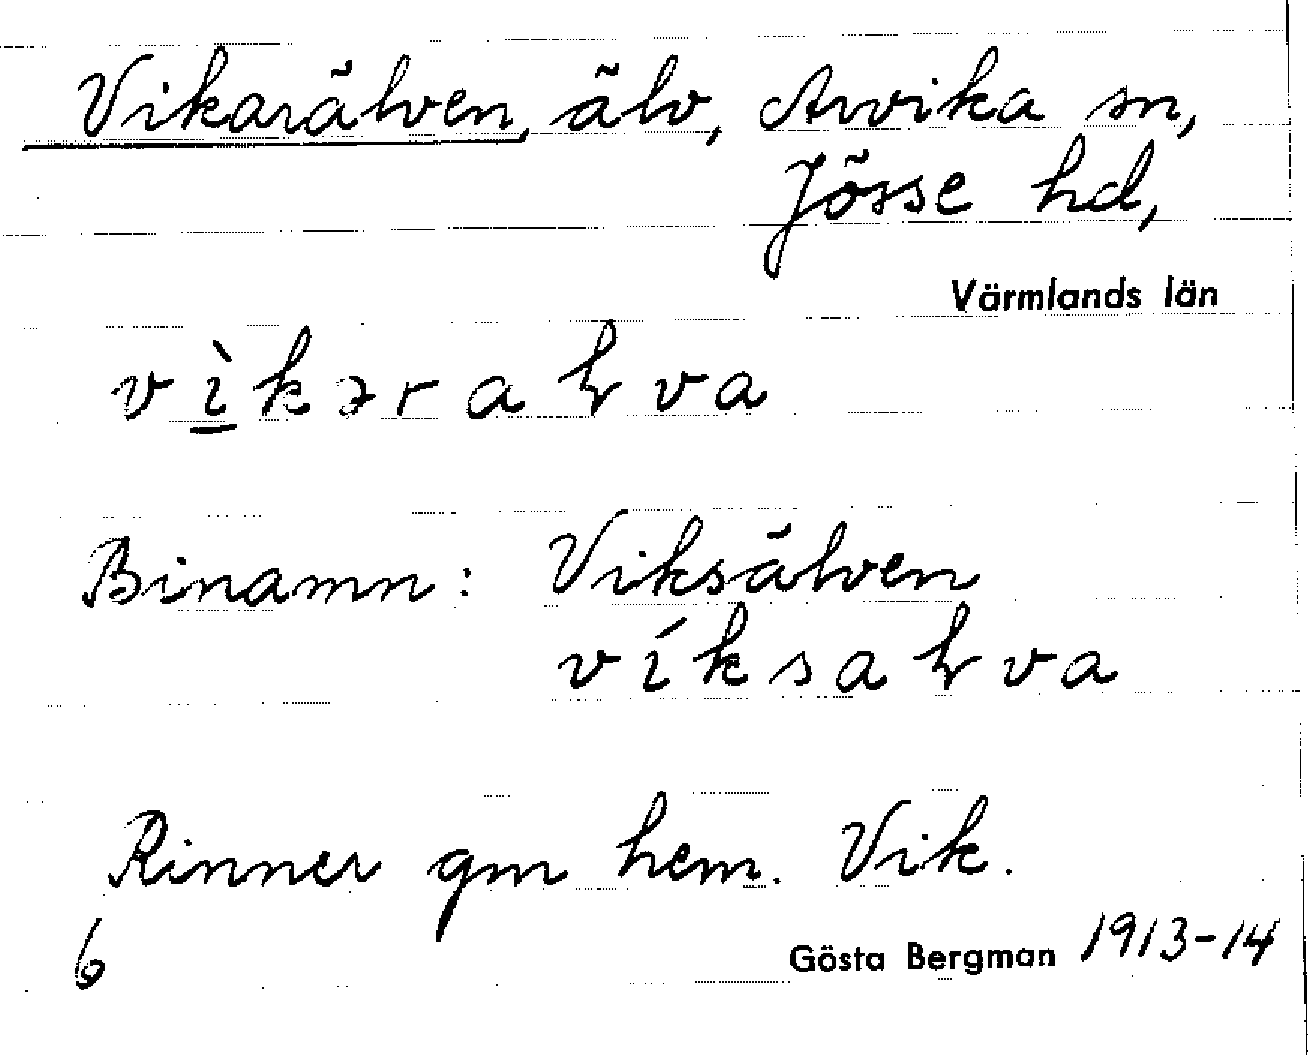 Vikarälven, älv, Arvika sn,
Jösse hd,
Värmlands län
vì̲kəraƚva
Binamn: Viksälven
víksaƚva
Rinner gm hem. Vik.
6
Gösta Bergman 1913-14